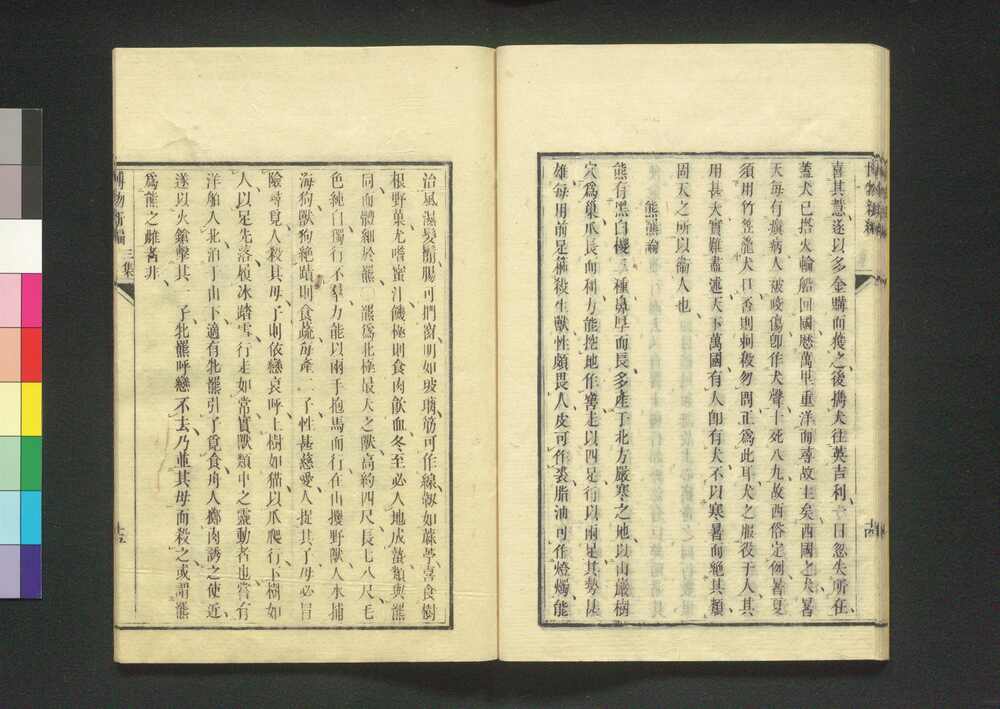 博物新編
喜其慧遂以多金購而蓰之後携犬往英吉利一日忽失所在
蓋犬已搭火輪船回國歷萬里重洋而尋故主矣西國之犬暑
天每有癲病人被咬傷卽作犬聲十死八九故西俗定例暑夏
須用竹笠籠犬口否則刺殺勿問正爲此耳犬之服役于人其
用甚大實難盡述天下萬國有人卽有犬不以寒暑而絕其類
固天之所以備人也
熊羆論
熊有黑白椶三種鼻厚而長多產于北方嚴寒之地以山巖樹
穴爲巢爪長而利力能挖地作窖走以四足行以兩足其勢
雄每用前足撲殺生獸性頗畏人皮可作裘脂油可作燈燭能
十四
治風濕髮鬚腸可捫窗明如玻璃筋可作線韌如蔴苧喜食樹
根野菓尤嗜蜜汁饑極則食肉飮血冬至必入地成蟄類與羆
同而體細於羆 羆爲北極最大之獸高約四尺長七八尺毛
色純白獨行不羣力能以兩手抱馬而行在山攫野獸入水捕
海狗獸狗絕蹟則食蔬每產二子性甚慈愛人捉其子母必冒
險尋覓人殺其母子則依戀哀呼上樹如猫以爪爬行下樹如
人以足先落履冰踏雪行走如常實獸類中之靈動者也嘗有
洋船人北泊于山下適有牝羆引子覓食舟人擲肉誘之使近
遂以火鎗擊其一子牝羆呼戀不去乃並其母而殺之或謂羆
爲熊之雌者非
博物新編 三集
十五